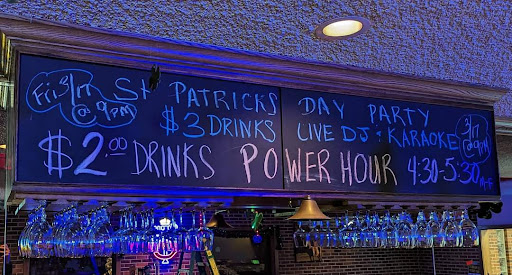 Fri 3/17 @ 9pm
St PATRICKS DAY PARTY
$3 DRINKS LIVE DJ & KARAOKE
3/17 @ 9pm
$2.00 DRINKS POWER HOUR 4:30-5:30